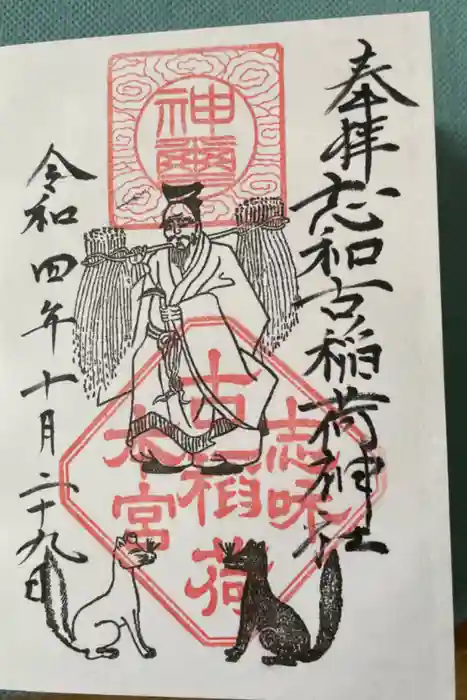 奉拝志和古稲荷神社
神璽
志和
古稲荷
宮
令和四年十月二十九日